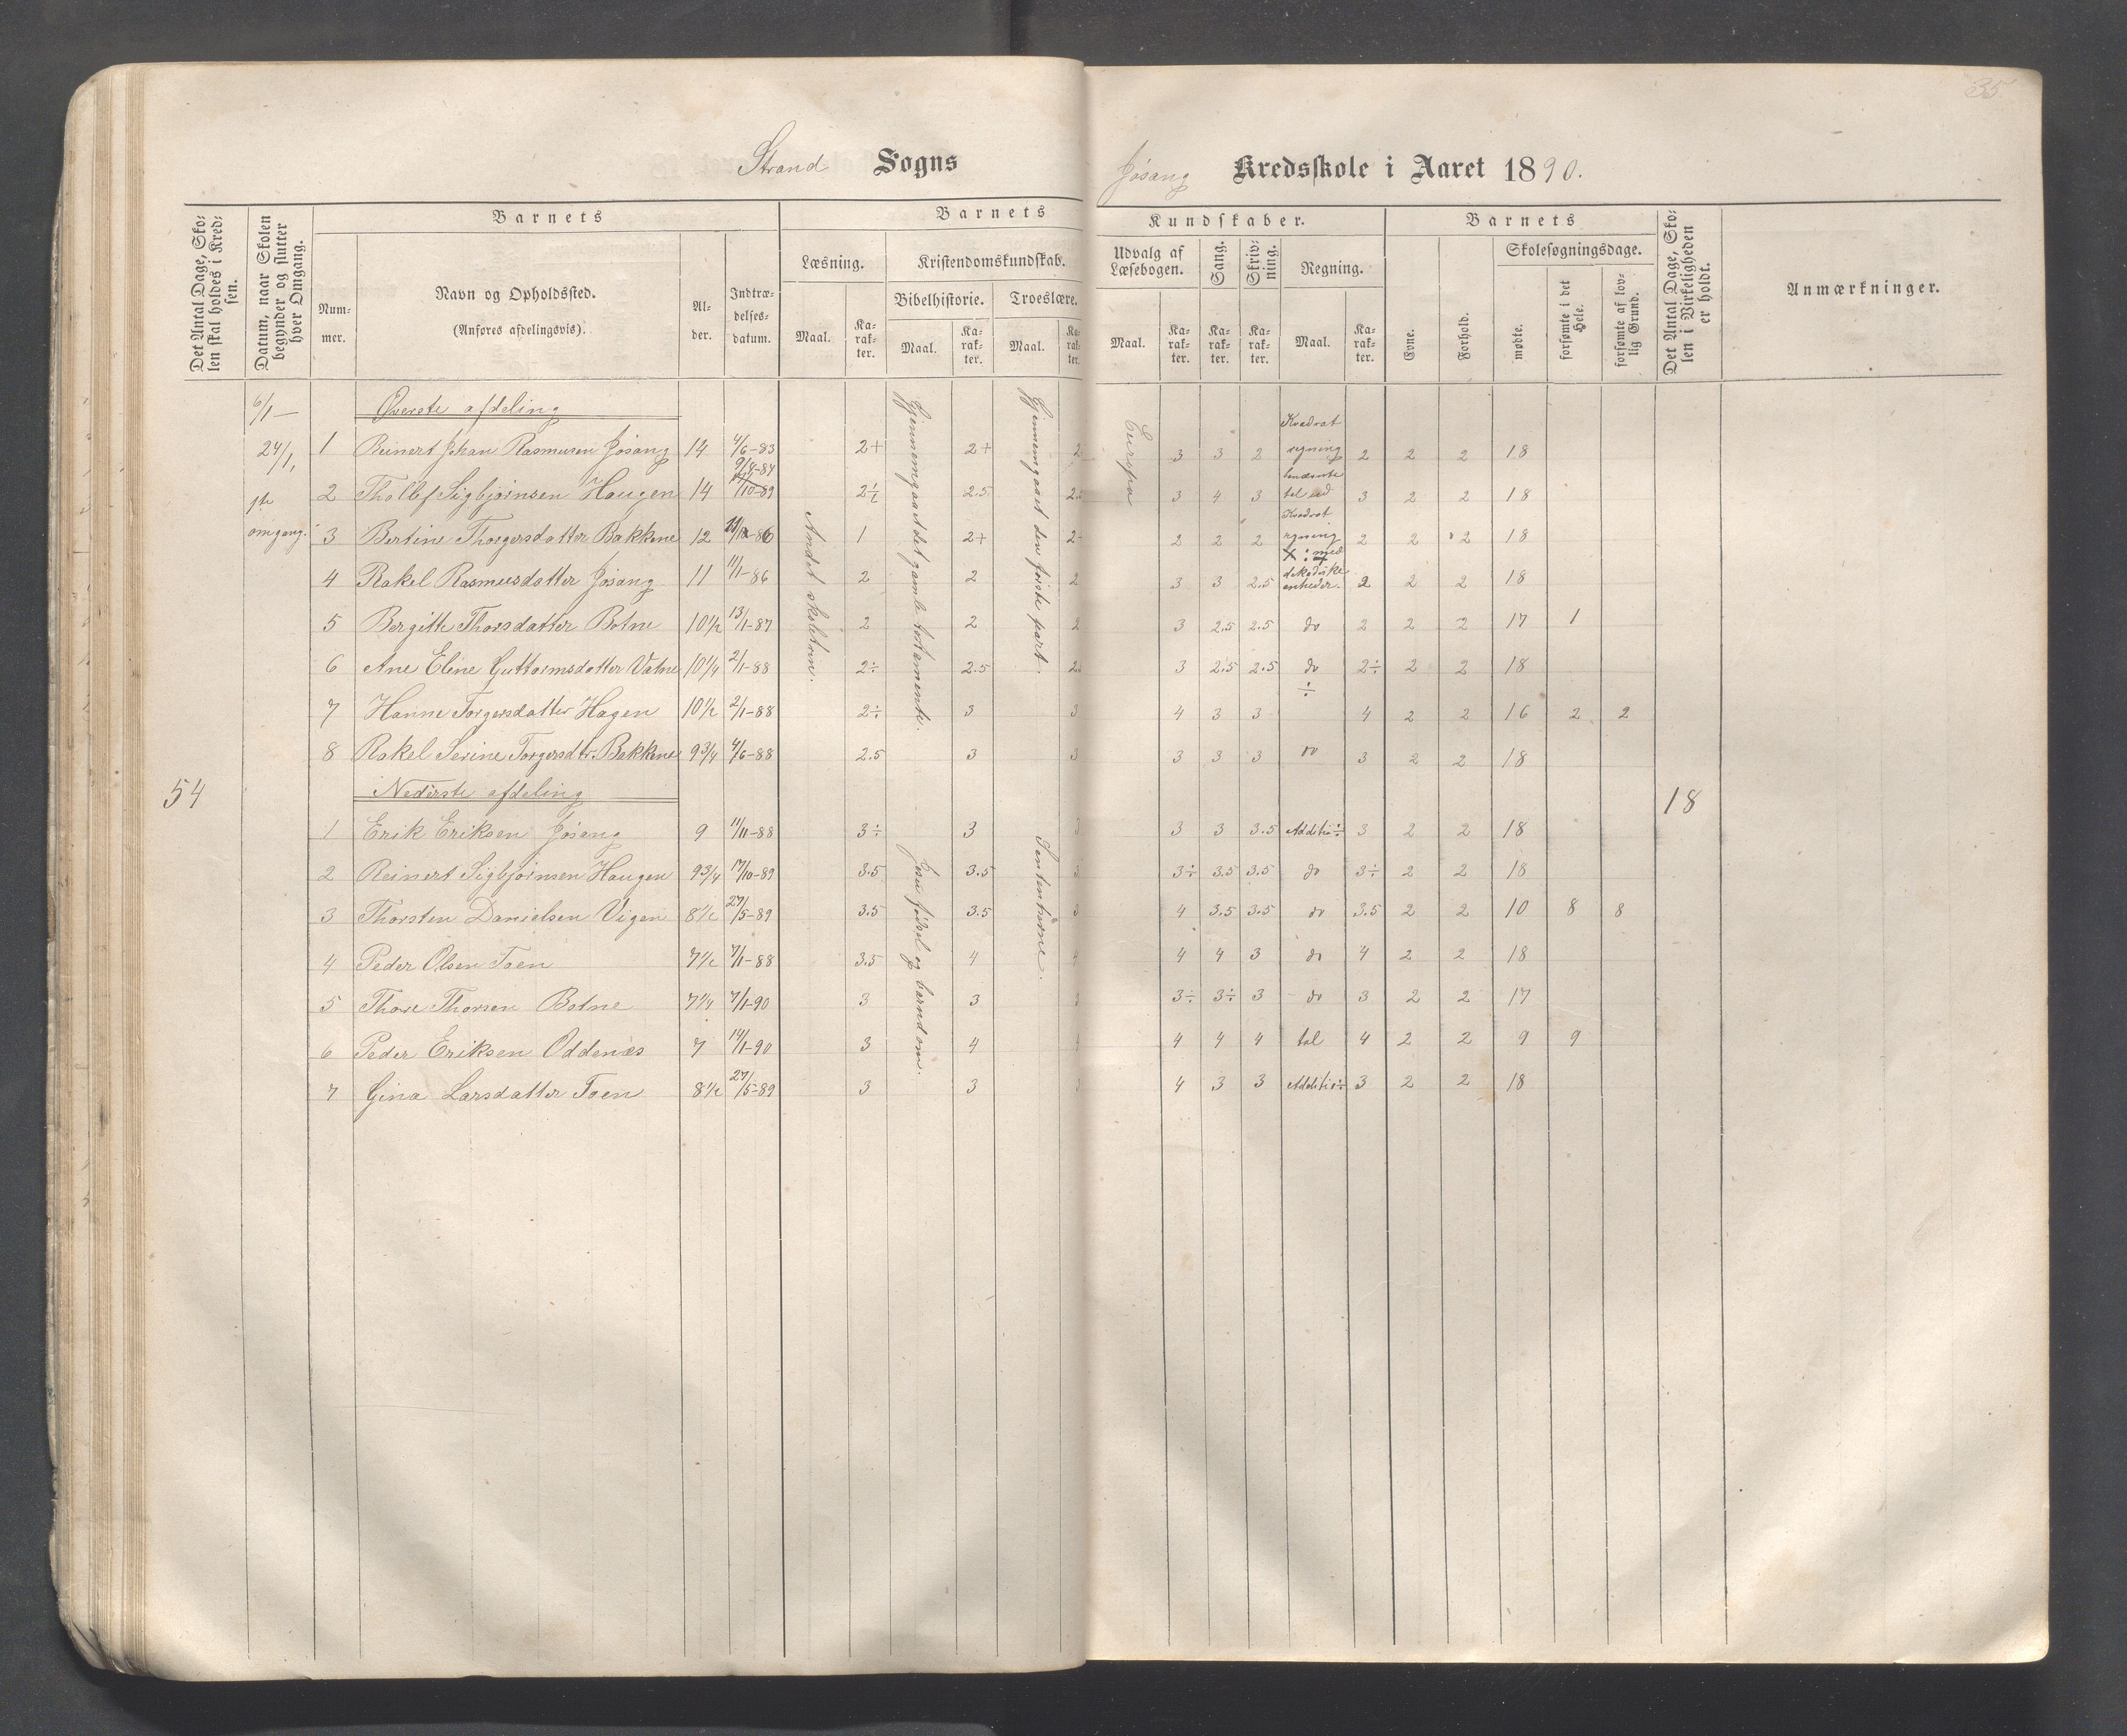 35
Strand Sogns
Jösang Kredsskole i Aaret 1890.
Det Antal Dage, Skolen skal holdes i Kredsen.
Datum, naar Skolen begynder og slutter hver Omgang.
Barnets
Nummer.
Navn og Opholdssted.
(Anføres afdelingsvis).
Alder.
Indtrædelsesdatum.
Barnets
Læsning.
Maal.
Karakter.
Kristendomskundskab.
Bibelhistorie.
Maal.
Karakter.
Troeslære.
Maal.
Kundskaber.
Udvalg af Læsebogen.
Maal.
Karakter.
Sang.
Karakter.
Skrivning.
Karakter.
Regning.
Maal.
Karakter.
Barnets
Evne.
Forhold.
Skolesøgningsdage.
mødte.
forsømte i det Hele.
forsømte af lovlig Grund.
Det Antal Dage, Skolen i Virkeligheden er holdt.
Anmærkninger.
6/1 —
24/1,
1ste
omgang.
54
18
Andet skoletrin.
Gjennemgaaet det gamle testamente.
Gjennemgaaet den første part.
Europa
Jesu fødsel og barndom.
Øverste afdeling
1 Reinert Johan Rasmusen Jösang 14 4/6-83 2+ 2+ 2 3 3 2 Kvadrat regning 2 2 2 18
2 Tholf Sigbjørnsen Haugen 14 9/4-84 17/10-89 2÷ 2.5 3 4 3 benævnte tal 3 2 2 18
3 Bertine Thorgersdatter Bakkene 12 11/12-86 1 2+ 2 2 2 2 Kvadrat regning 2 2 2 18
4 Rakel Rasmusdatter Jösang 11 11/1-86 2 2 2 3 3 2.5 X: med dekadiske enheder. 2 2 2 18
5 Bergitte Thorsdatter Botne 10½ 13/1-87 2 2 2 3 2.5 2.5 do 2 2 2 17 1
6 Ane Elene Guttormsdatter Vatne 10¼ 2/1-88 2÷ 2.5 3 2.5 2.5 do 2÷ 2 2 18
7 Hanne Torgersdatter Hagen 10½ 2/1-88 2÷ 3 3 4 3 3 ÷ 4 2 2 16 2 2
8 Rakel Serine Torgersdtr. Bakkene 9¾ 4/6-88 2.5 3 3 3 3 3 do 3 2 2 18
Nederste afdeling
1 Erik Eriksen Jösang 9 11/11-88 3÷ 3 3 3 3 3.5 Additio÷ 3 2 2 18
2 Reinert Sigbjørnsen Haugen 9¾ 17/10-89 3.5 3.5 3 3÷ 3.5 3.5 do 3÷ 2 2 18
3 Thorsten Danielsen Vigen 8½ 27/5-89 3.5 3.5 3 4 3.5 3.5 do 3.5 2 2 10 8 8
4 Peder Olsen Toen 7½ 7/1-88 3.5 4 4 4 4 3 do 4 2 2 18
5 Thore Thorsen Botne 7¼ 7/1-90 3 3 3 3÷ 3÷ 3 do 3 2 2 17
6 Peder Eriksen Oddenæs 7 14/1-90 3 4 4 4 4 4 tal 4 2 2 9 9
7 Gina Larsdatter Toen 8½ 27/5-89 3 3 3 4 3 3 Additio÷ 3 2 2 18